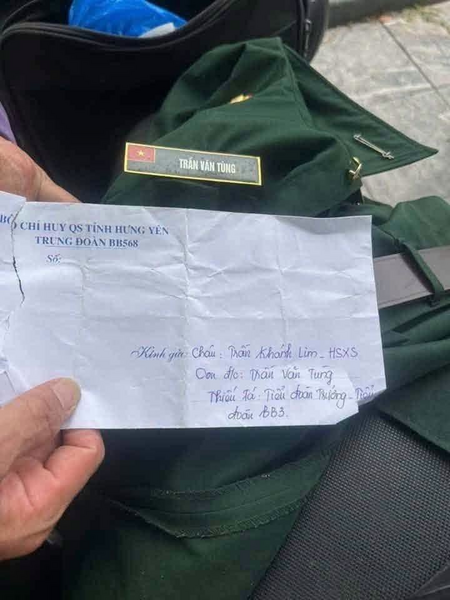 TRẦN VĂN TÙNG
BỘ CHỈ HUY QS TỈNH HƯNG YÊN
TRUNG ĐOÀN BB568
Số:
Kính gửi: Cháu: Trần Khánh Lim - HSXS
Con đ/c: Trần Văn Tùng
Thiếu tá: Tiểu đoàn Trưởng - Tiểu
đoàn BB3.